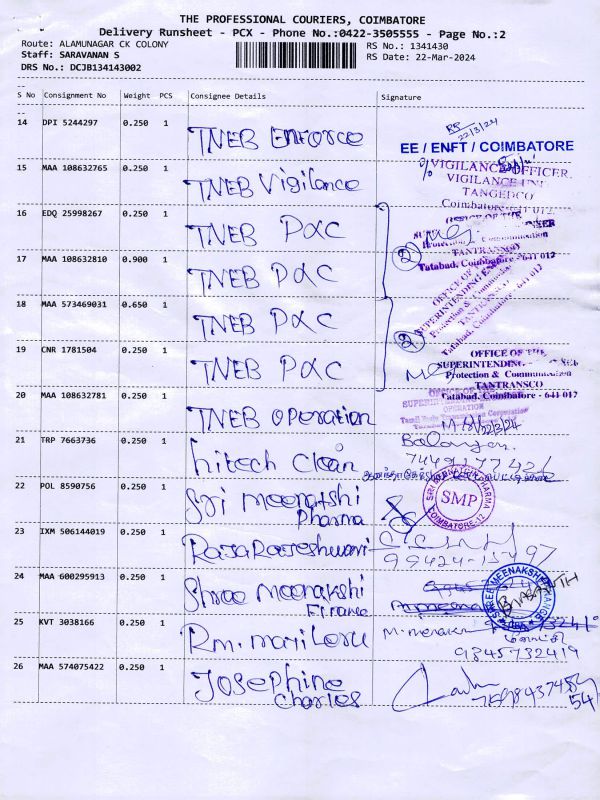 THE PROFESSIONAL COURIERS, COIMBATORE
Delivery Runsheet - PCX - Phone No.:0422-3505555 - Page No.:2
Route: ALAMUNAGAR CK COLONY
RS No.: 1341430
Staff: SARAVANAN S
RS Date: 22-Mar-2024
DRS No.: DCJB134143002
S No Consignment No Weight PCS Consignee Details Signature
14 DPI 5244297 0.250 1 TNEB Enforce
22/3/24
EE / ENFT / COIMBATORE
15 MAA 108632765 0.250 1 TNEB Vigilance
VIGILANCE OFFICER
VIGILANCE UNIT
TANGEDCO
Coimbatore - 641 012.
16 EDQ 25998267 0.250 1 TNEB P&C
OFFICE OF THE
Protection & Communication
TANTRANSCO
Tatabad, Coimbatore - 641 012
17 MAA 108632810 0.900 1 TNEB P&C
2
OFFICE OF THE
SUPERINTENDING
Protection & Communication
TANTRANSCO
Tatabad, Coimbatore - 641 012
18 MAA 573469031 0.650 1 TNEB P&C
2
19 CNR 1781504 0.250 1 TNEB P&C
OFFICE OF THE
SUPERINTENDING
Protection & Communication
TANTRANSCO
Tatabad, Coimbatore - 641 012
20 MAA 108632781 0.250 1 TNEB Operation
OFFICE OF THE
OPERATION
22/3/24
21 TRP 7663736 0.250 1 hitech Clean
22 POL 8590756 0.250 1 Sri Meenatshi
Pharma
SRI MEENATCHI PHARMA
SMP
COIMBATORE-12
23 IXM 506144019 0.250 1 RajaRajeshwari
24 MAA 600295913 0.250 1 Shree Meenakshi
Finance
SHREE MEENAKSHI FINANCE
25 KVT 3038166 0.250 1 Rm. mayileru
9845732419
26 MAA 574075422 0.250 1 Josephine
Charles